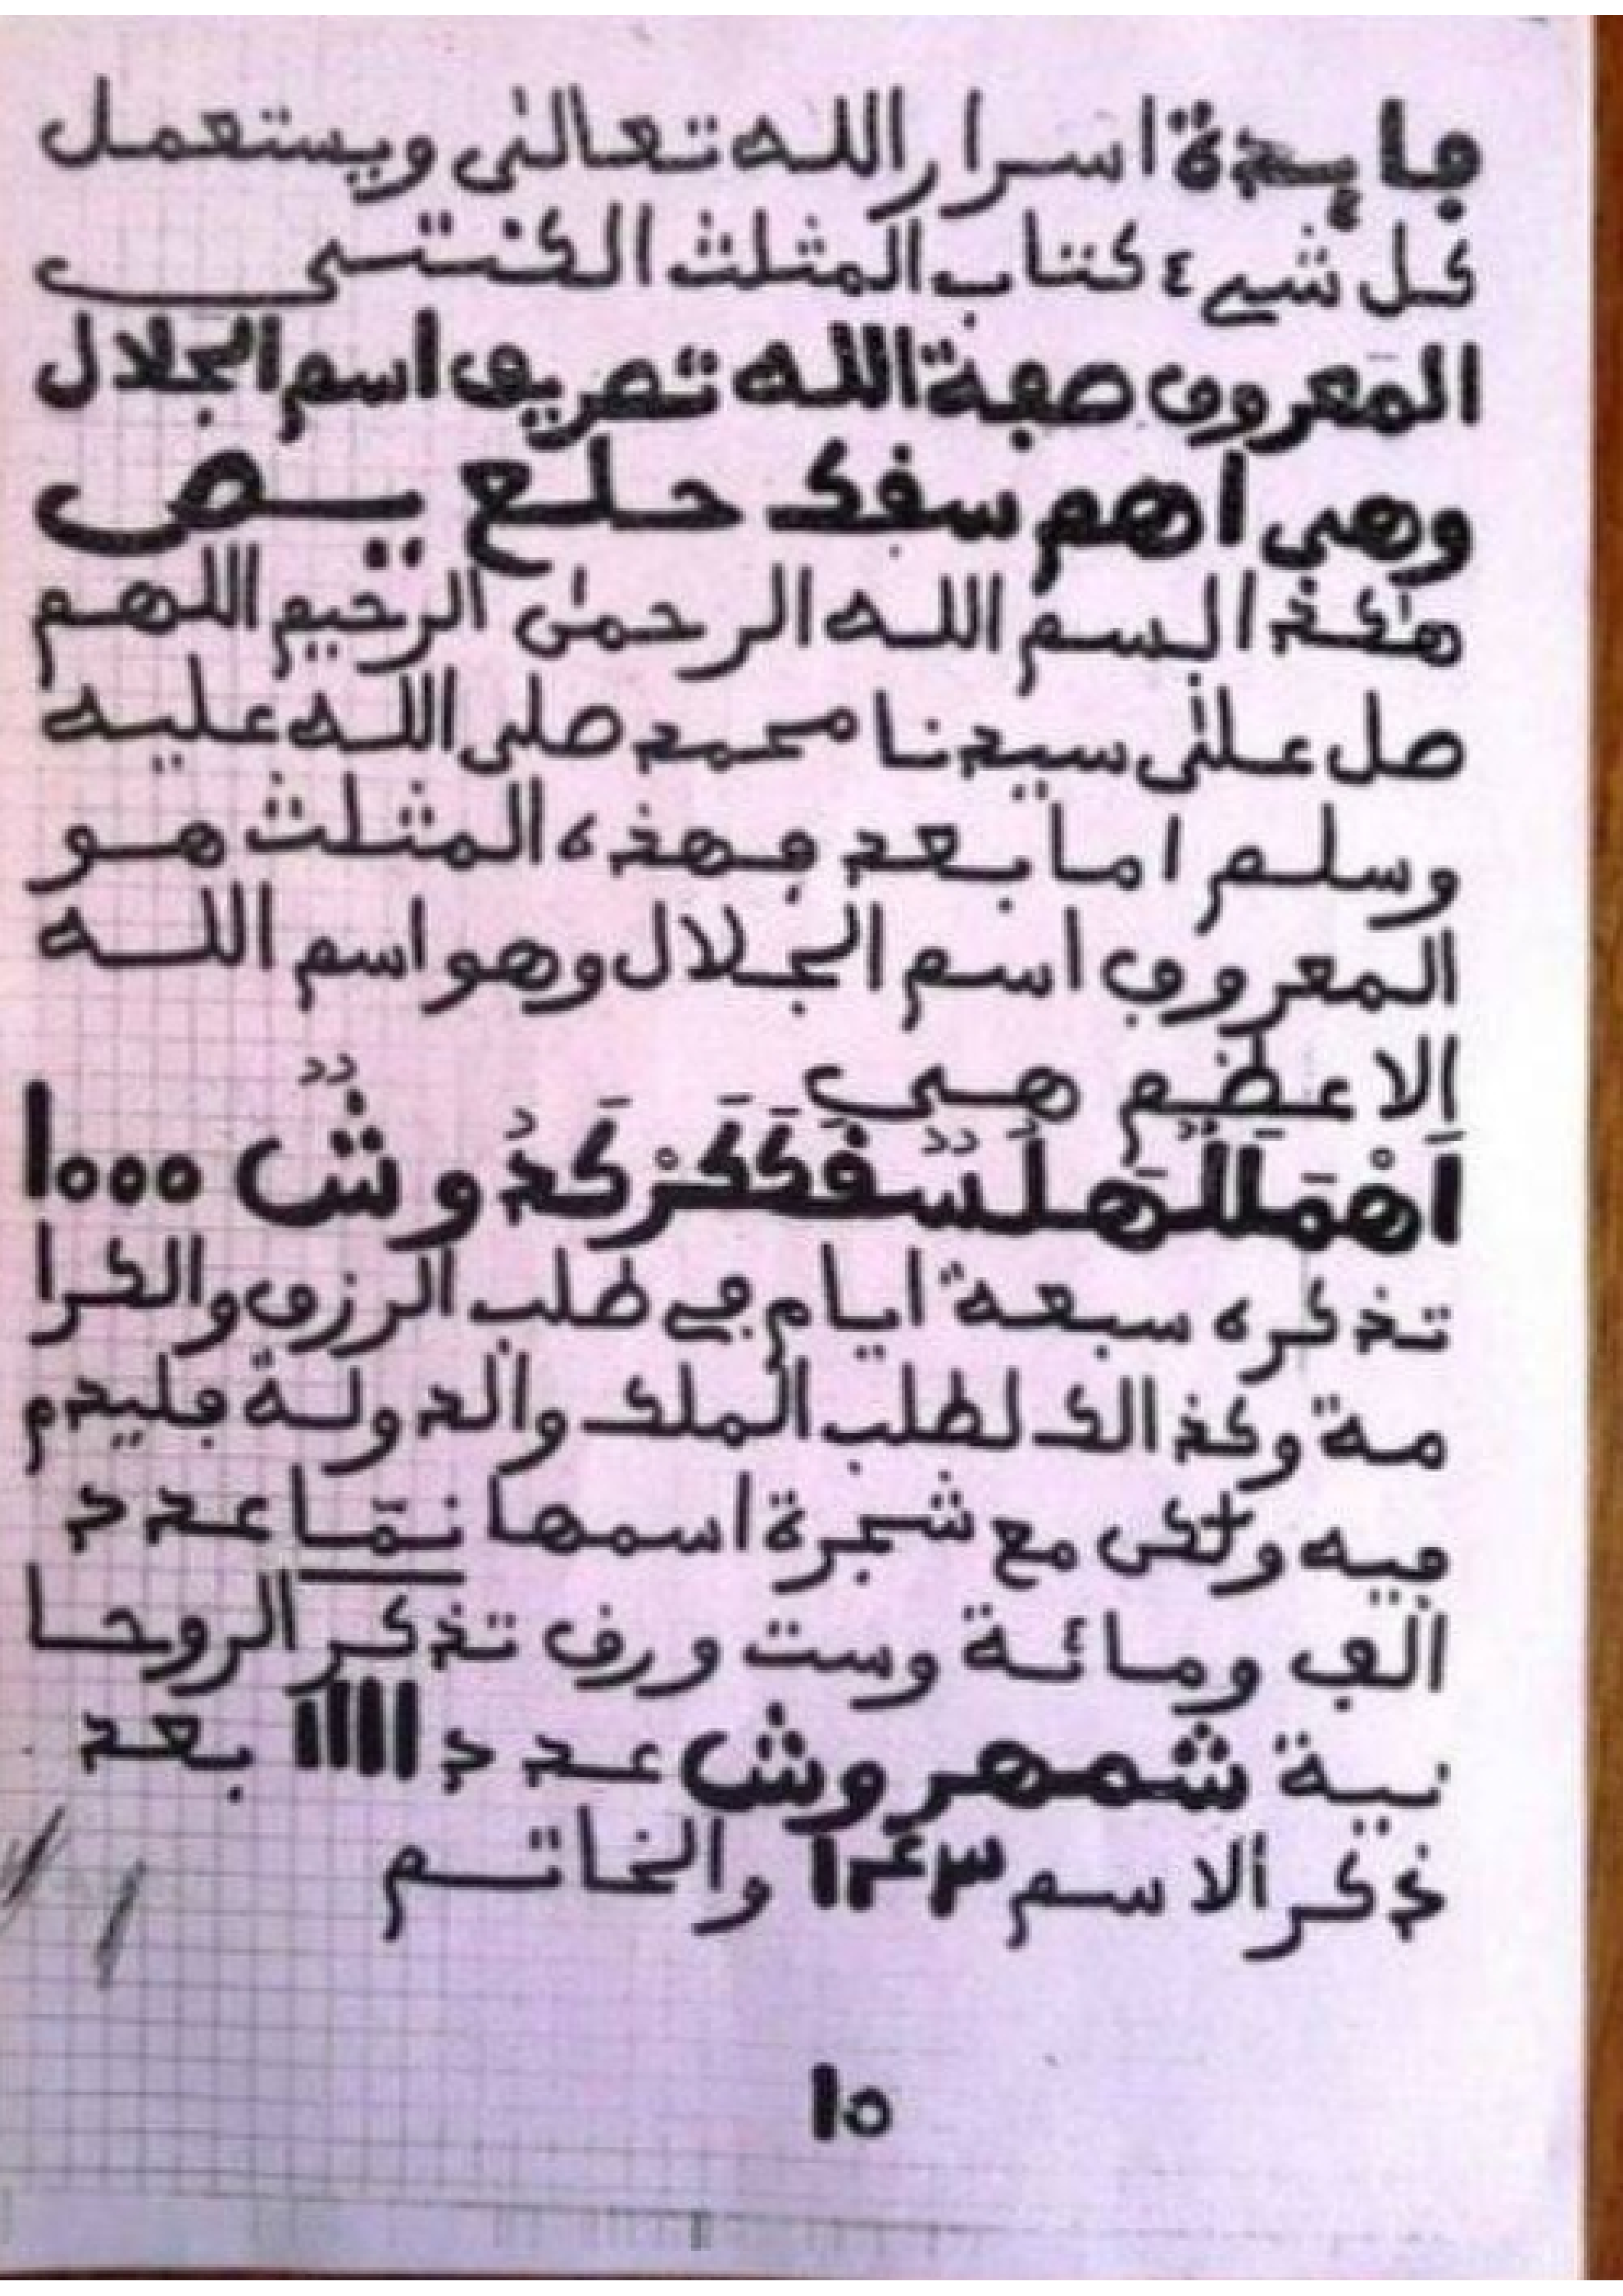 فايدة اسرار الله تعالى ويستعمل
كل شيء كتاب المثلث الكنتسي
المعروف صفة الله تصريف اسم الجلال
وهي اهم سفك حلع يص
هكذا بسم الله الرحمن الرحيم اللهم
صل على سيدنا محمد صلى الله عليه
وسلم اما بعد فهذه المثلث هو
المعروف اسم الجلال وهو اسم الله
الاعظم هي
اَهْمَلَلٌهَلٌسٌفَكَكَرْكَدٌوشٌ 1000
تذكره سبعة ايام في طلب الرزق والكرا
مة وكذالك لطلب الملك والدولة فليدم
فيه مع شجرة اسمها نمّا عدد
الف ومائة وست ورق تذكر الروحا
نية شمهروش عدد 1111 بعد
ذكر الاسم والخاتم
10